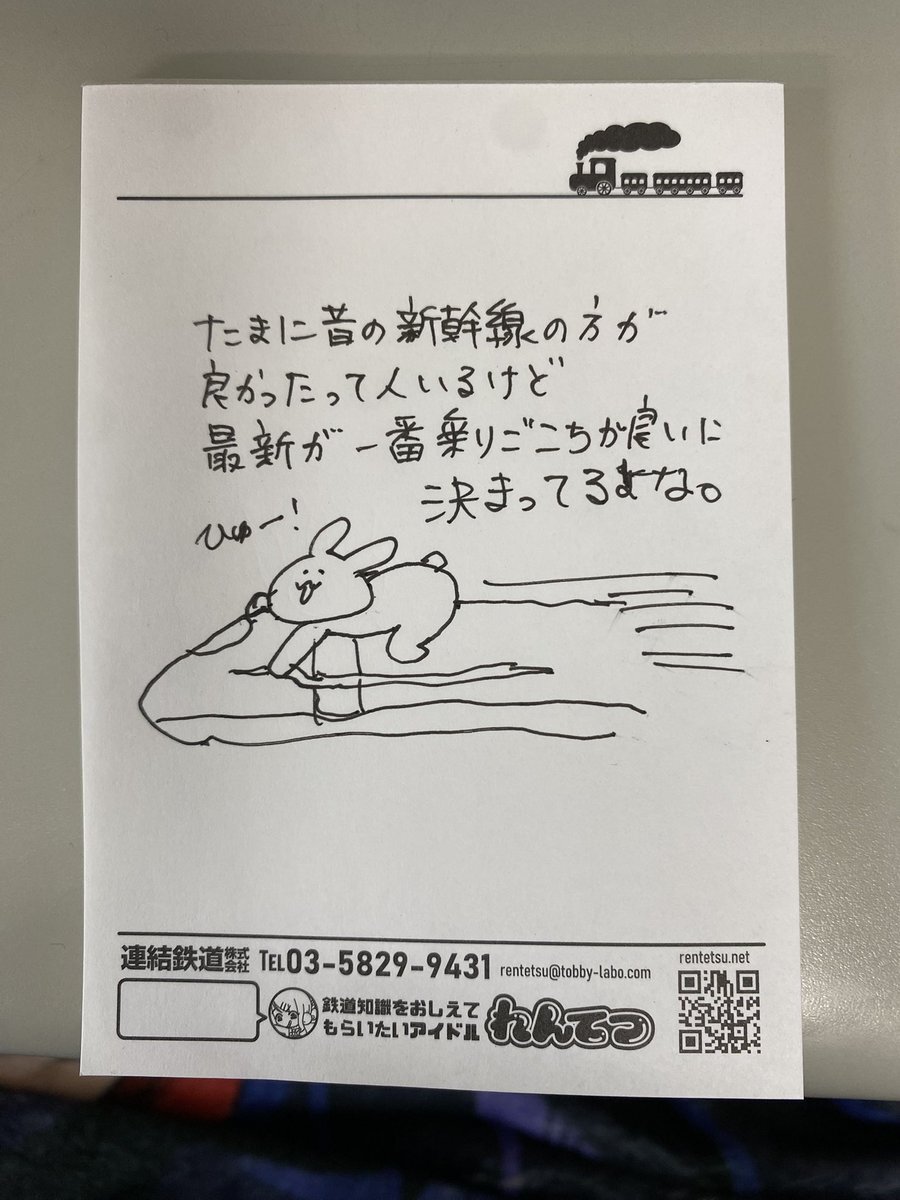 たまに昔の新幹線の方が
良かったって人いるけど
最新が一番乗りごこちが良いに
決まってるよな。
ひゅー!
連結鉄道株式会社 TEL03-5829-9431 rentetsu@tobby-labo.com
rentetsu.net
鉄道知識をおしえて
もらいたいアイドル
れんてつ